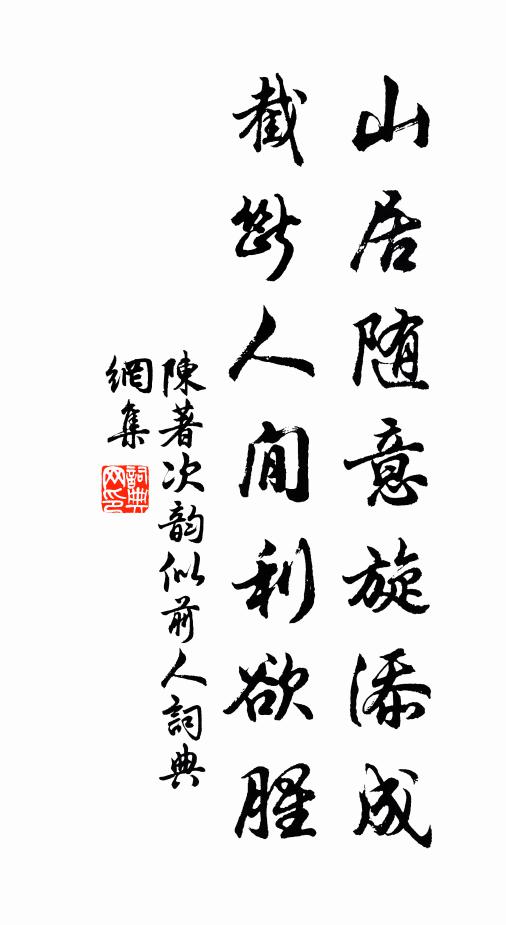 山居随意旋添成
截断人间利欲腥
陳著次韵似前人詞典
網集
詞典网印